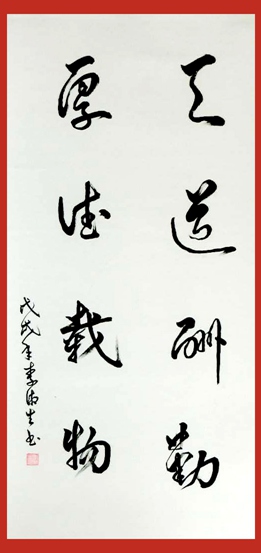 天道酬勤
厚德载物
戊戌年秦海生书